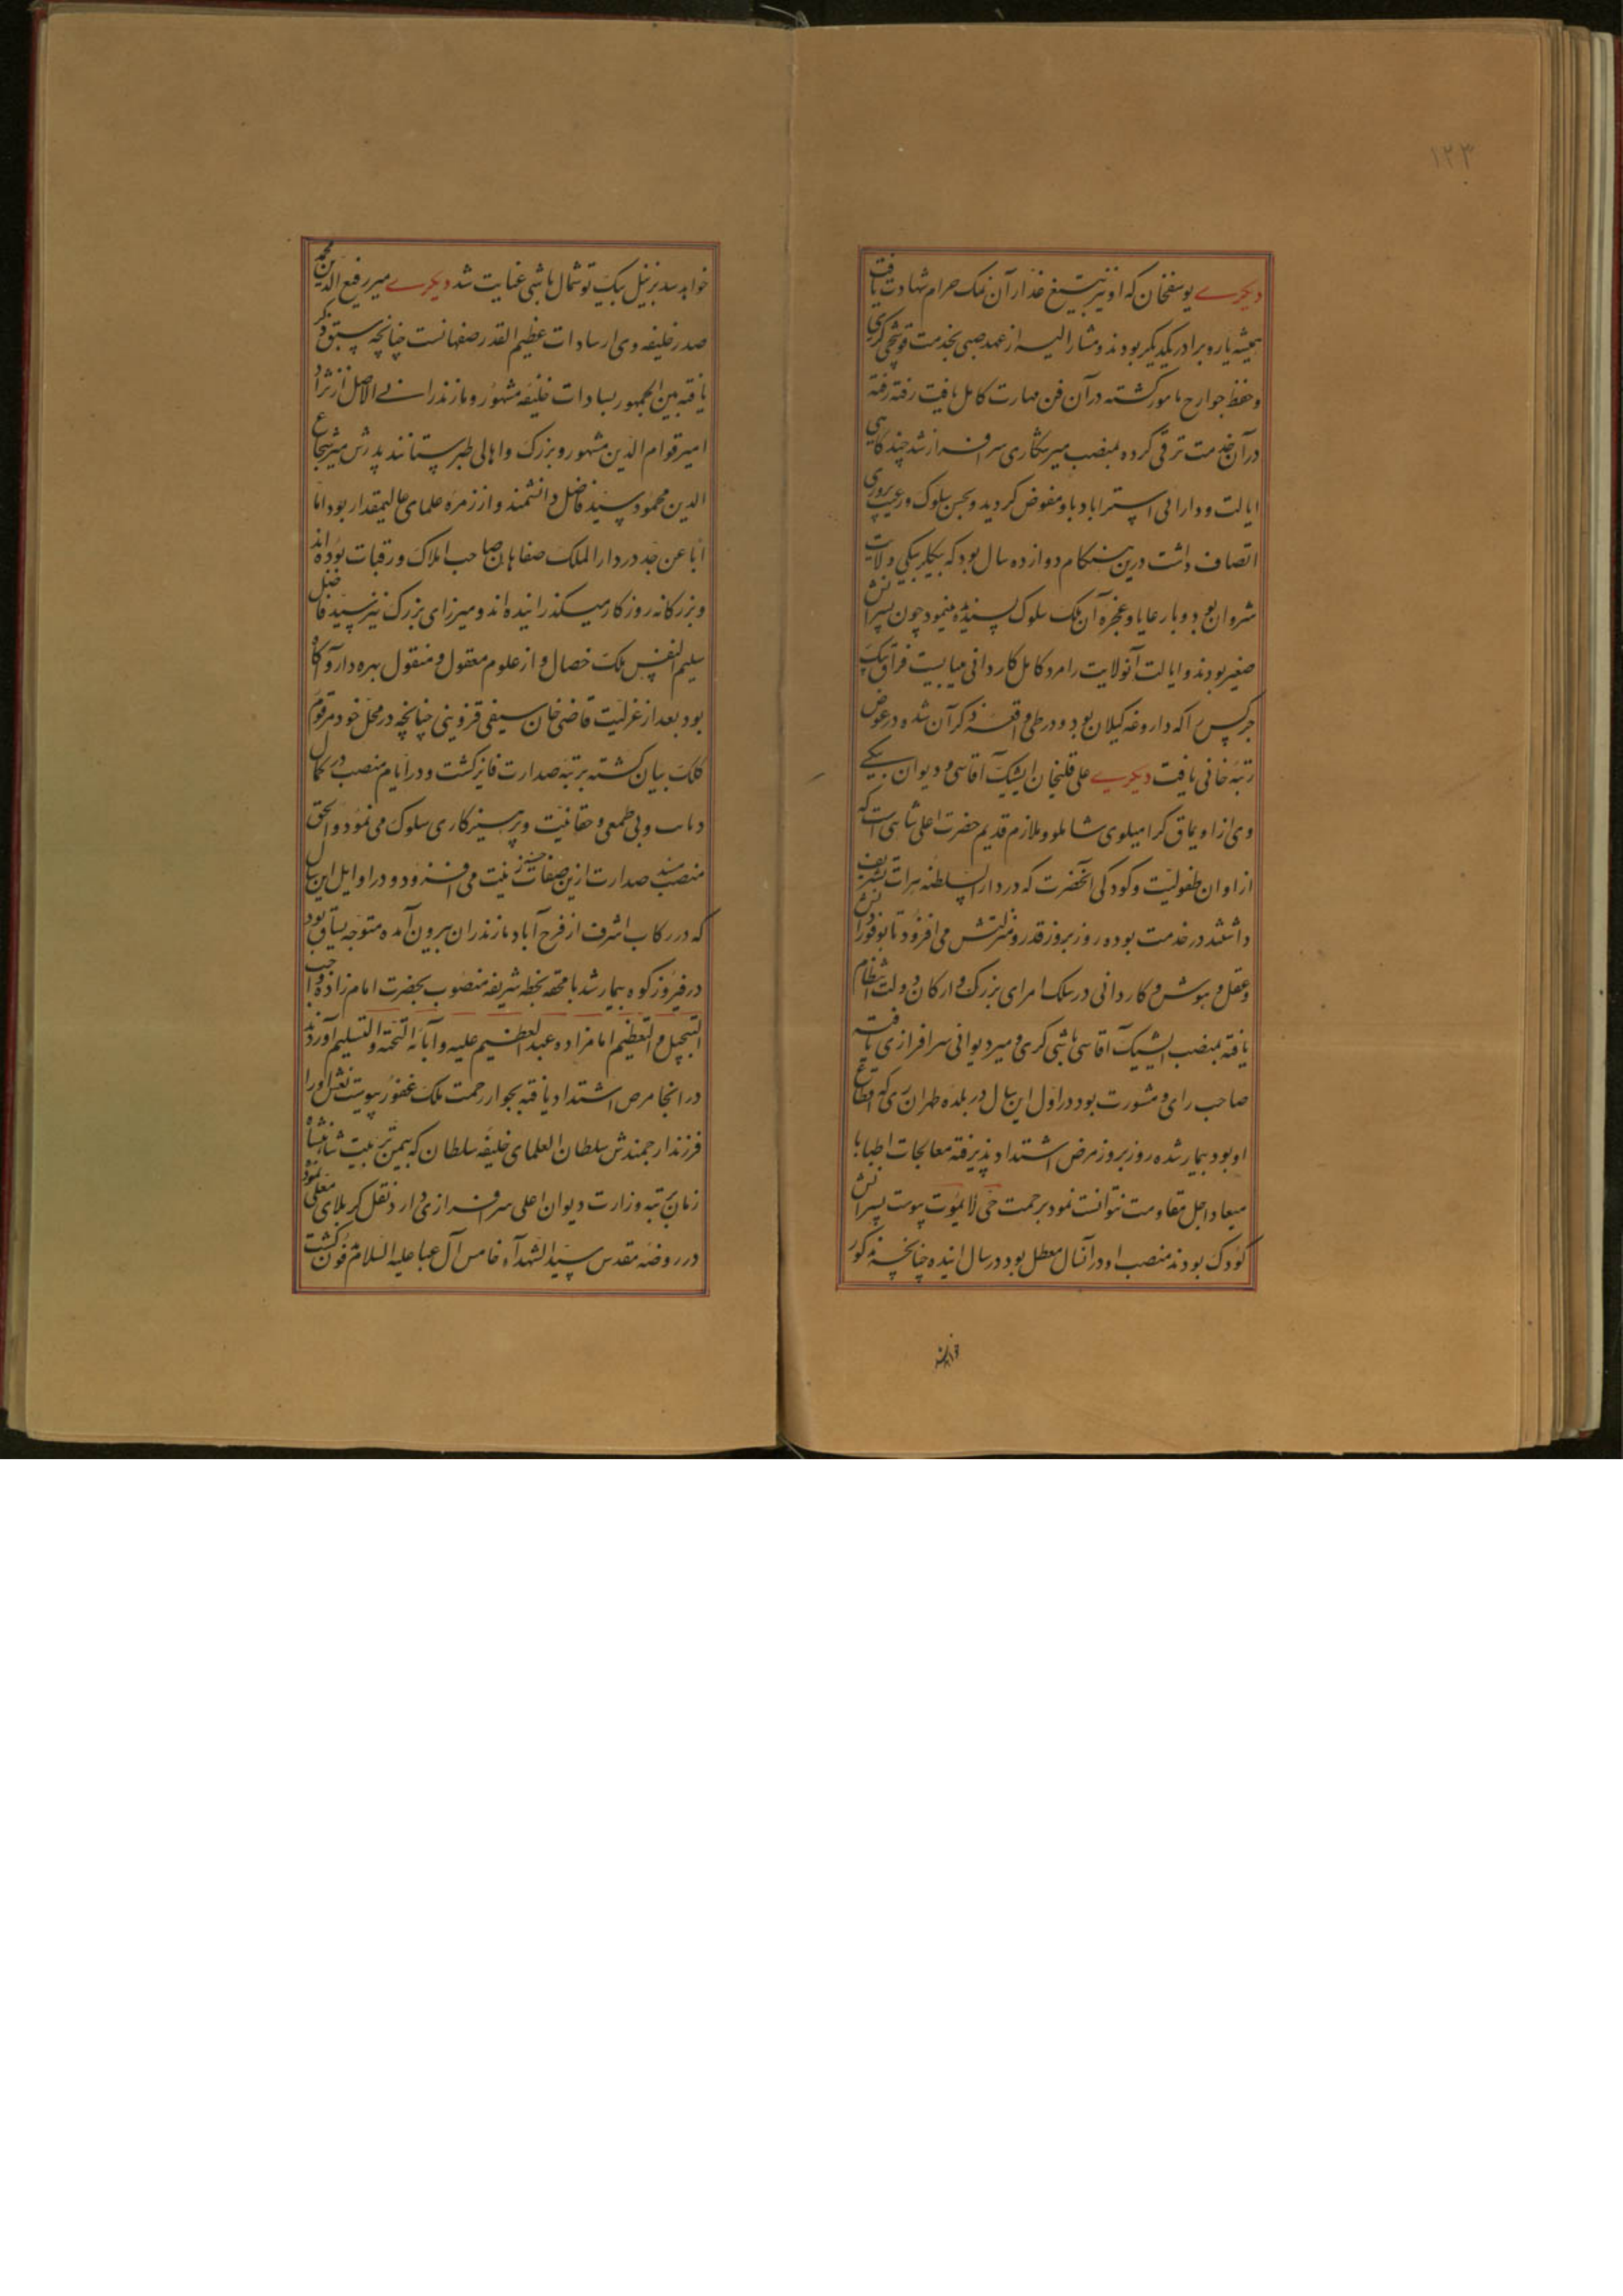 ۱۲۳
دیکرے یوسفخان که او نیز بتیغ غدار آن نمک حرام شهادت یافت
همیشه یار و برادر یکدیکر بودند و مشار الیه از عهد صبی بخدمت قوشچی کری
و حفظ جوارح مامور کشته در آن فن مهارت کامل یافت رفته رفته
در آن خدمت ترقی کرده بمنصب میرشکاری سرافراز شد چند کاهی
ایالت و دارائی استراباد باو مفوض کردید و بحسن سلوک و رعیت پروری
اتصاف داشت درین هنکام دوازده سال بود که بیکلربیکی ولایت
شروان بود و با رعایا و عجزه آن ملک سلوک پسندیده مینمود چون پسرانش
صغیر بودند و ایالت آنولایت را مرد کامل کاردانی میبایست قزاق بیک
چرکس را که داروغه کیلان بود و در طی واقعه ذکر آن شده در عوض
رتبه خانی یافت دیکرے علی قلیخان ایشیک آقاسی و دیوان بیکے
وی از اویماق کرامیلوی شاملو و ملازم قدیم حضرت اعلی شاهی است که
از اوان طفولیت و کودکی آنحضرت که در دار السلطنه هرات تشریف
داشتند در خدمت بوده روز بروز قدر و منزلتش می افزود تا بوفور دانش
و عقل و هوش و کاردانی در سلک امرای بزرک و ارکان دولت انتظام
یافته بمنصب ایشیک آقاسی باشی کری و میر دیوانی سرافرازی یافته
صاحب رای و مشورت بود در اول این سال در بلده طهران ری که اقطاع
او بود بیمار شده روز بروز مرض اشتداد پذیرفته معالجات اطبا با
میعاد اجل مقاومت نتوانست نمود برحمت حی لا یموت پیوست پسرانش
کودک بودند منصب او در آنسال معطل بود در سال آینده چنانچه مذکور
خواهد شد بزینل بیک توشمال باشی عنایت شد دیکرے میر رفیع الدین محمد
صدر خلیفه وی از سادات عظیم القدر صفهانست چنانچه سبق ذکر
یافته بین الجمهور بسادات خلیفه مشهور و مازندرانے الاصل از نژاد
امیر قوام الدین مشهور و بزرک و اهالی طبرستانند پدرش میر شجاع
الدین محمود سید فاضل دانشمند و از زمره علمای عالیمقدار بود اما
ابا عن جد در دار الملک صفاهان صاحب املاک و رقبات بوده اند
و بزرکانه روزکار میکذرانیده اند و میرزای بزرک نیز سید فاضل
سلیم النفس ملک خصال و از علوم معقول و منقول بهره دار و آکاه
بود بعد از عزلیت قاضی خان سیفی قزوینی چنانچه در محل خود مرقوم
کلک بیان کشته برتبه صدارت فایز کشت و در ایام منصب در کمال
و بی طمعی و حقانیت و پرهیزکاری سلوک می نمود و الحق
منصب صدارت ازین صفات زینت می افزود و در اوایل این سال
که در رکاب اشرف از فرح آباد مازندران بیرون آمده متوجه یساق بود
در فیروزکوه بیمار شد با محفه بخطه شریفه منصوب بحضرت امام زاده واجب
التبجیل و التعظیم امامزاده عبد العظیم علیه و آبائه التحیة و التسلیم آوردند
در انجا مرض اشتداد یافته بجوار رحمت ملک غفور پیوست نعش او را
فرزند ارجمندش سلطان العلمای خلیفه سلطان که بیمن تربیت شاهنشاه
زمان برتبه وزارت دیوان اعلی سرافرازی دارد نقل کربلای معلی نمود
در روضه مقدس سید الشهدآء خامس آل عبا علیه السلام مدفون کشت